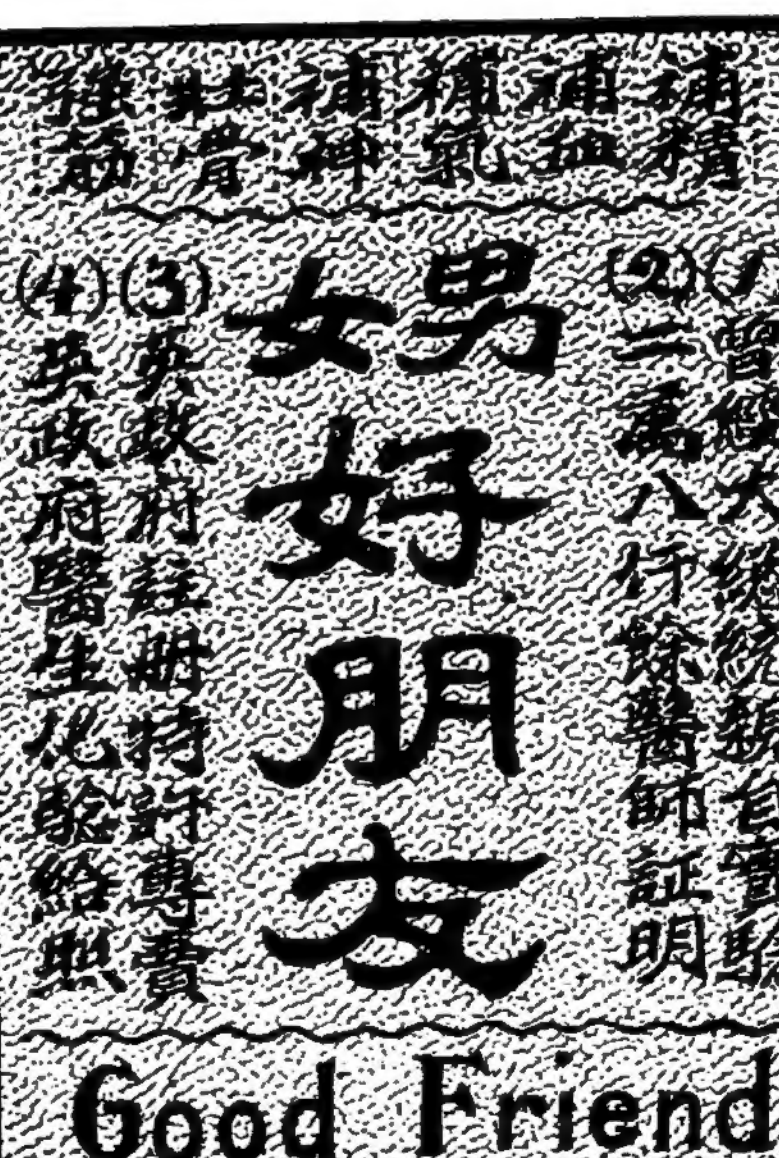 補精
補血
補氣
補神
壯骨
強筋
男女
好
朋
友
(1)醫 大總統親自實驗
(2)二萬八仟餘醫師証明
(3)英政府註册特許專賣
(4)英政府醫生化驗給照
Good Friend